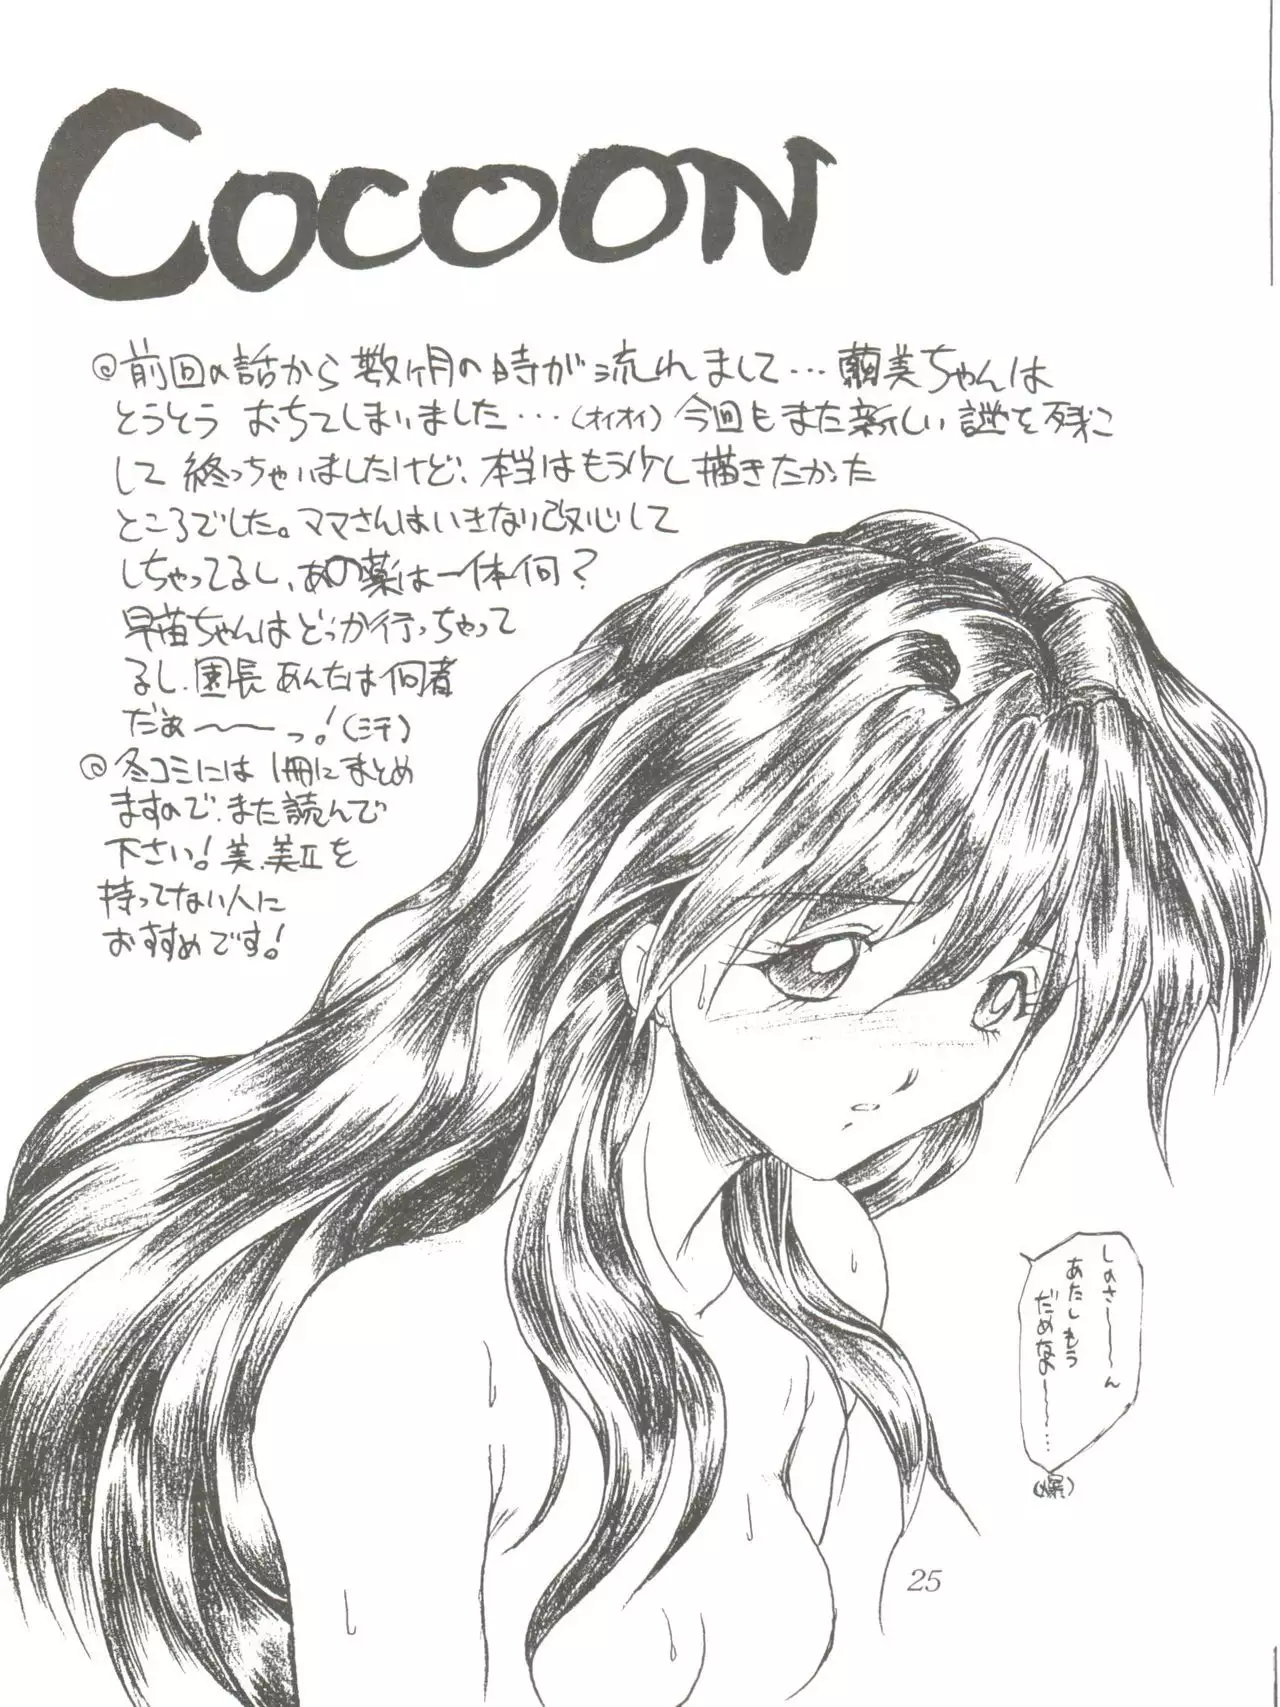 COCOON
@前回の話から数ヶ月の時が流れまして…繭美ちゃんは
とうとうおちてしまいました…(オイオイ)今回もまた新しい謎を残こ
して終っちゃいましたけど、本当はもう少し描きたかった
ところでした。ママさんはいきなり改心して
しちゃってるし、あの薬は一体何?
早苗ちゃんはどっか行っちゃって
るし、園長あんたは何者
だぁ〜〜っ!(汗)
@冬コミには1冊にまとめ
ますので、また読んで
下さい!美、美IIを
持ってない人に
おすすめです!
しのさ〜〜ん
あたしもう
だめなの〜〜…
(爆)
25